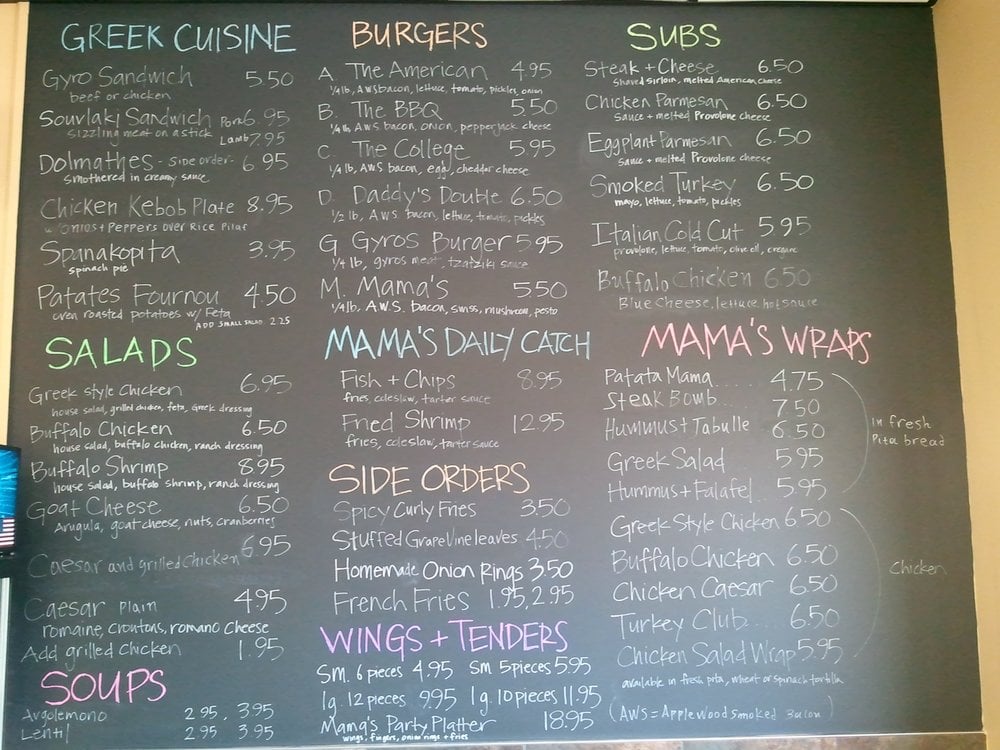 GREEK CUISINE
Gyro Sandwich 5.50
beef or chicken
Sourlaki Sandwich Pork 6.95
sizzling meat on a stick Lamb 7.95
Dolmathes - side order - 6.95
smothered in creamy sauce
Chicken Kebob Plate 8.95
w/onions + Peppers over Rice Pilaf
Spanakopita 3.95
spinach pie
Patates Fournou 4.50
oven roasted potatoes w/ Feta
ADD SMALL SALAD 2.25
SALADS
Greek style Chicken 6.95
house salad, grilled chicken, feta, Greek dressing
Buffalo Chicken 6.50
house salad, buffalo chicken, ranch dressing
Buffalo Shrimp 8.95
house salad, buffalo shrimp, ranch dressing
Goat Cheese 6.50
Arugula, goat cheese, nuts, cranberries
Caesar and grilled Chicken 6.95
Caesar Plain 4.95
romaine, croutons, romano cheese
Add grilled chicken 1.95
SOUPS
Avgolemono 2.95, 3.95
Lentil 2.95 3.95
BURGERS
A. The American 4.95
1/4 lb, AWS bacon, lettuce, tomato, pickles, onion
B. The BBQ 5.50
1/4 lb AWS bacon, onion, pepperjack cheese
C. The College 5.95
1/4 lb, AWS bacon, egg, cheddar cheese
D. Daddy's Double 6.50
1/2 lb, A.W.S. bacon, lettuce, tomato, pickles
G. Gyros Burger 5.95
1/4 lb, gyros meat, tzatziki sauce
M. Mama's 5.50
1/4 lb, A.W.S. bacon, swiss, mushroom, pesto
MAMA'S DAILY CATCH
Fish + Chips 8.95
fries, coleslaw, tarter sauce
Fried Shrimp 12.95
fries, coleslaw, tarter sauce
SIDE ORDERS
Spicy Curly Fries 3.50
Stuffed Grape Vine leaves 4.50
Homemade Onion Rings 3.50
French Fries 1.95, 2.95
WINGS + TENDERS
Sm. 6 pieces 4.95 Sm 5 pieces 5.95
lg. 12 pieces 9.95 lg. 10 pieces 11.95
Mama's Party Platter 18.95
wings, fingers, onion rings + fries
SUBS
Steak + Cheese 6.50
shaved sirloin, melted American cheese
Chicken Parmesan 6.50
sauce + melted Provolone cheese
Eggplant Parmesan 6.50
sauce + melted Provolone cheese
Smoked Turkey 6.50
mayo, lettuce, tomato, pickles
Italian Cold Cut 5.95
provolone, lettuce, tomato, olive oil, oregano
Buffalo Chicken 6.50
Blue Cheese, lettuce, hot sauce
MAMA'S WRAPS
Patata Mama..... 4.75
Steak Bomb.... 7.50
Hummus + Tabulle 6.50
Greek Salad 5.95
Hummus + Falafel.. 5.95
in fresh
Pita bread
Greek Style Chicken 6.50
Buffalo Chicken 6.50
Chicken Caesar 6.50
Turkey Club.... 6.50
Chicken Salad Wrap 5.95
Chicken
available in fresh pita, wheat or spinach tortilla
(AWS = Apple Wood Smoked Bacon)